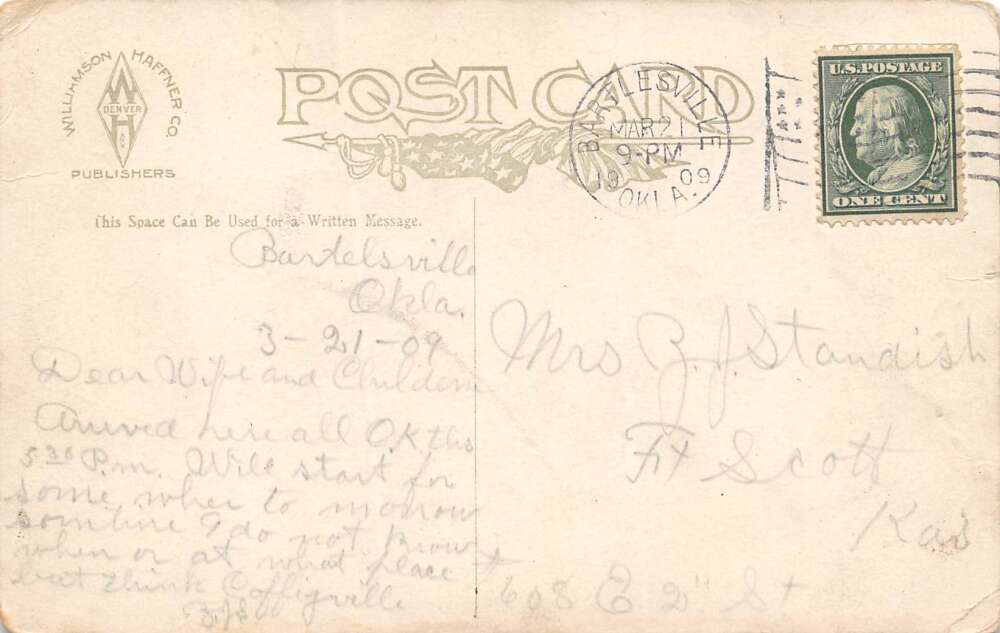 WILLIAMSON HAFFNER CO.
DENVER
PUBLISHERS
POST CARD
BARTLESVILLE
MAR 21
9-PM
1909
OKLA.
U.S. POSTAGE
ONE CENT
This Space Can Be Used for a Written Message.
Bartelsville
Okla.
3-21-09
Dear Wife and Childern
Arived here all O.K this
5 30 P.m. Will start for
some wher to morrow
somtime I do not know
when or at what place
but think Coffiyville
Z.J.S.
Mrs Z. J. Standish
Ft Scott
Kas
# 608 E 2" St